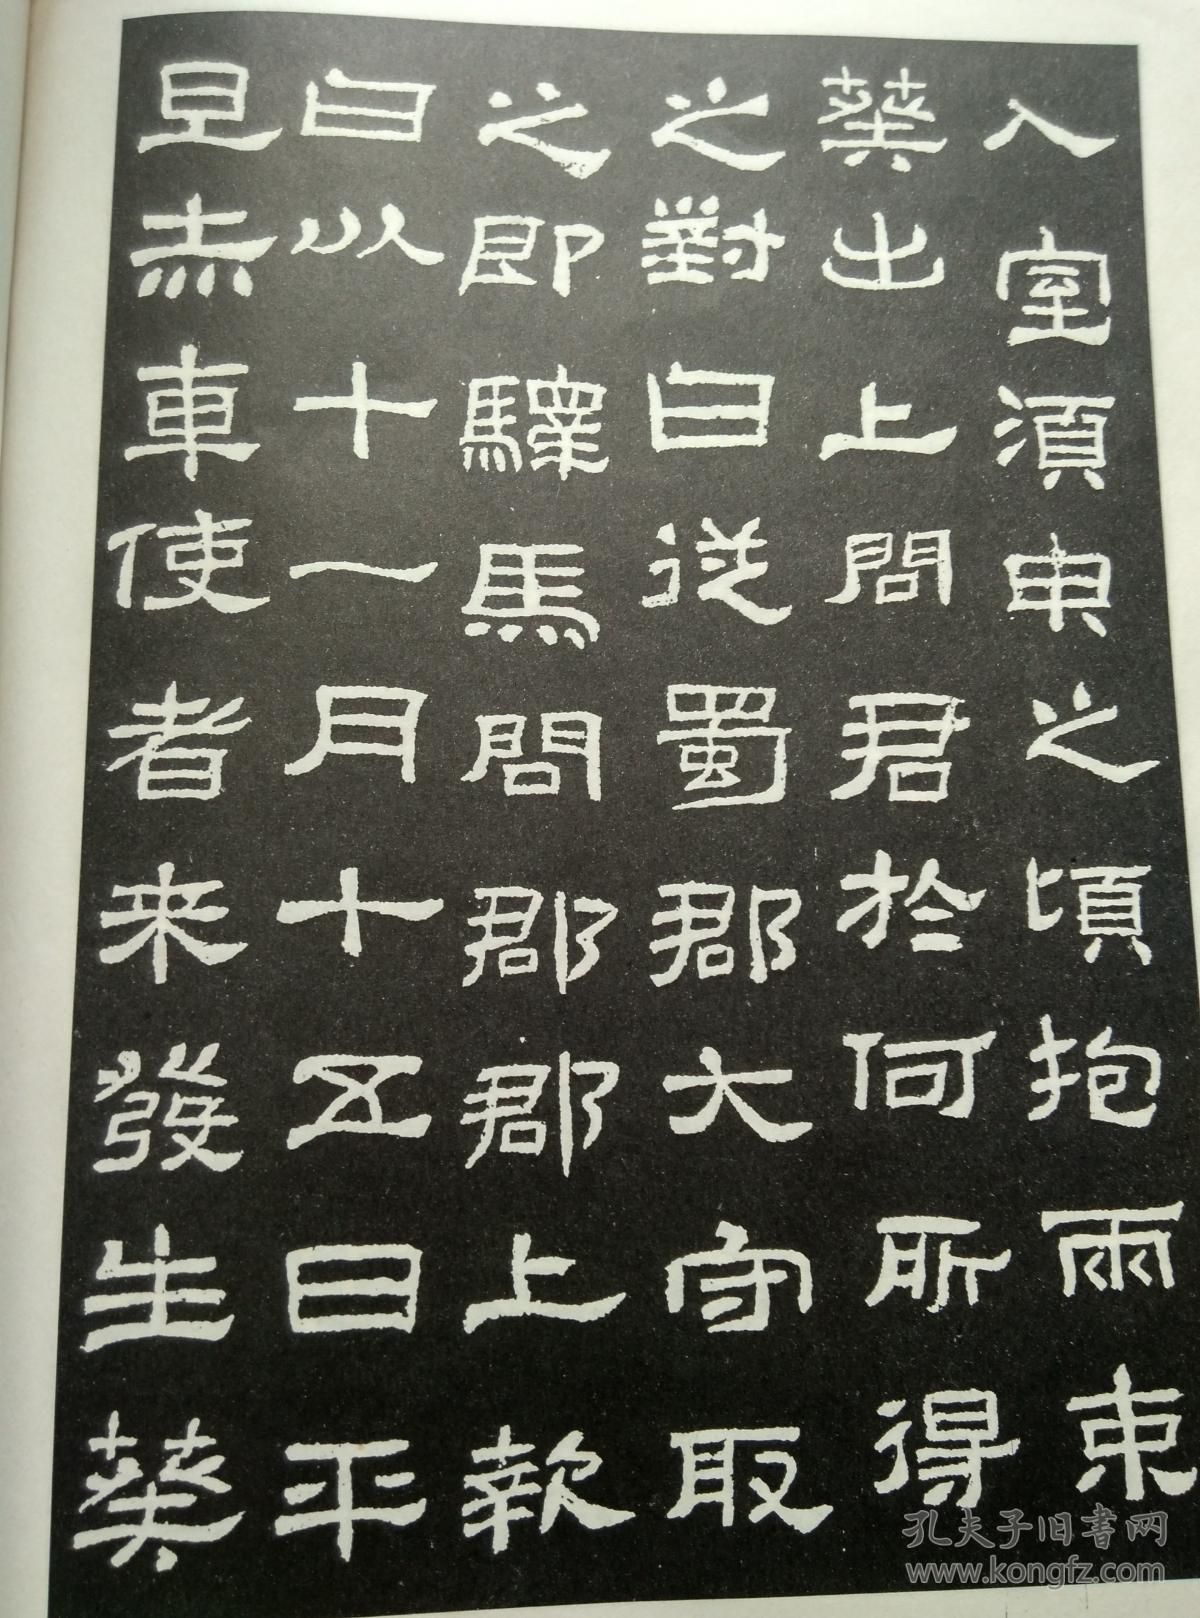 入室須臾之頃抱兩束
葵出上問君於何所得
之對曰從蜀郡大守取
之即驛馬問郡郡上報
曰以十一月十五日平
旦赤車使者来發生葵
孔夫子旧書网
www.kongfz.com